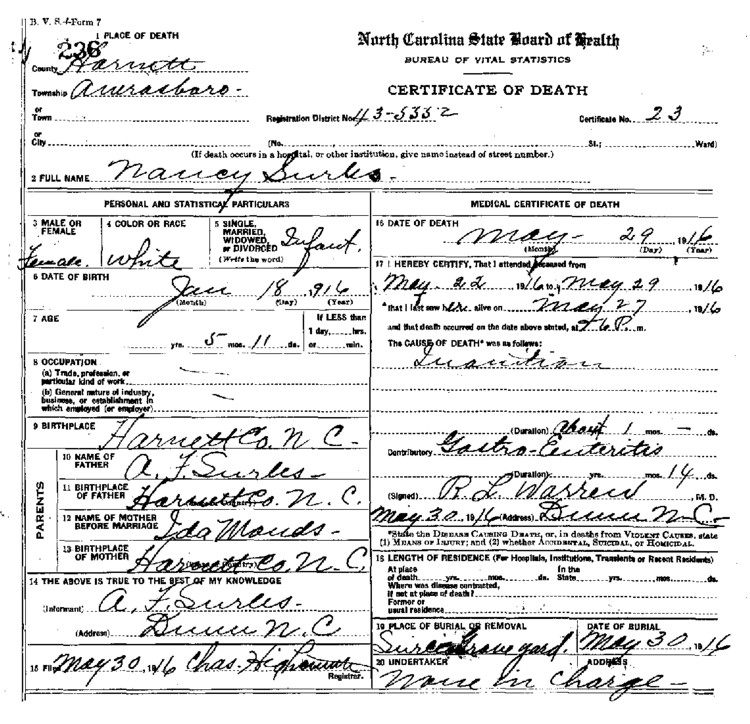 B. V. S.-Form 7
1 PLACE OF DEATH
236
County Harnett
Township Averasboro -
or
Town
or
City
North Carolina State Board of Health
BUREAU OF VITAL STATISTICS
CERTIFICATE OF DEATH
Registration District No. 43-5352 Certificate No. 23
(No. St.; Ward)
(If death occurs in a hospital, or other institution, give name instead of street number.)
2 FULL NAME Nancy Surles
PERSONAL AND STATISTICAL PARTICULARS
3 MALE OR FEMALE Female.
4 COLOR OR RACE White
5 SINGLE, MARRIED, WIDOWED, or DIVORCED (Write the word) Infant.
6 DATE OF BIRTH
Jan 18, 916
(Month) (Day) (Year)
7 AGE
If LESS than
1 day, hrs.
yrs. 5 mos. 11 ds. or min.
8 OCCUPATION
(a) Trade, profession, or
particular kind of work
(b) General nature of industry,
business, or establishment in
which employed (or employer)
9 BIRTHPLACE Harnett Co. N C -
PARENTS
10 NAME OF FATHER A. F. Surles -
11 BIRTHPLACE OF FATHER Harnett Co. N. C.
12 NAME OF MOTHER BEFORE MARRIAGE Ida Monds -
13 BIRTHPLACE OF MOTHER Harnett Co. N. C.
14 THE ABOVE IS TRUE TO THE BEST OF MY KNOWLEDGE
(Informant) A. F. Surles -
(Address) Dunn N. C
15 Filed May 30, 1916 Chas.
Registrar.
MEDICAL CERTIFICATE OF DEATH
16 DATE OF DEATH
May - 29, 1916
(Month) (Day) (Year)
17 I HEREBY CERTIFY, That I attended deceased from
May 22 1916 to May 29 1916
that I last saw her alive on May 27, 1916
and that death occurred on the date above stated, at 6 P. m.
The CAUSE OF DEATH* was as follows:
Inanition
(Duration) About 1 mos. - ds.
Contributory Gastro-Enteritis
(Duration) yrs. mos. 14 ds.
(Signed) R L Warren, M. D.
May 30, 1916 (Address) Dunn N C -
*State the DISEASE CAUSING DEATH, or, in deaths from VIOLENT CAUSES, state
(1) MEANS OF INJURY; and (2) whether ACCIDENTAL, SUICIDAL, or HOMICIDAL.
18 LENGTH OF RESIDENCE (For Hospitals, Institutions, Transients or Recent Residents)
At place of death yrs. mos. ds. In the State yrs. mos. ds.
Where was disease contracted,
if not at place of death?
Former or
usual residence
19 PLACE OF BURIAL OR REMOVAL
Grave yard.
DATE OF BURIAL
May 30, 1916
20 UNDERTAKER ADDRESS
None In Charge -